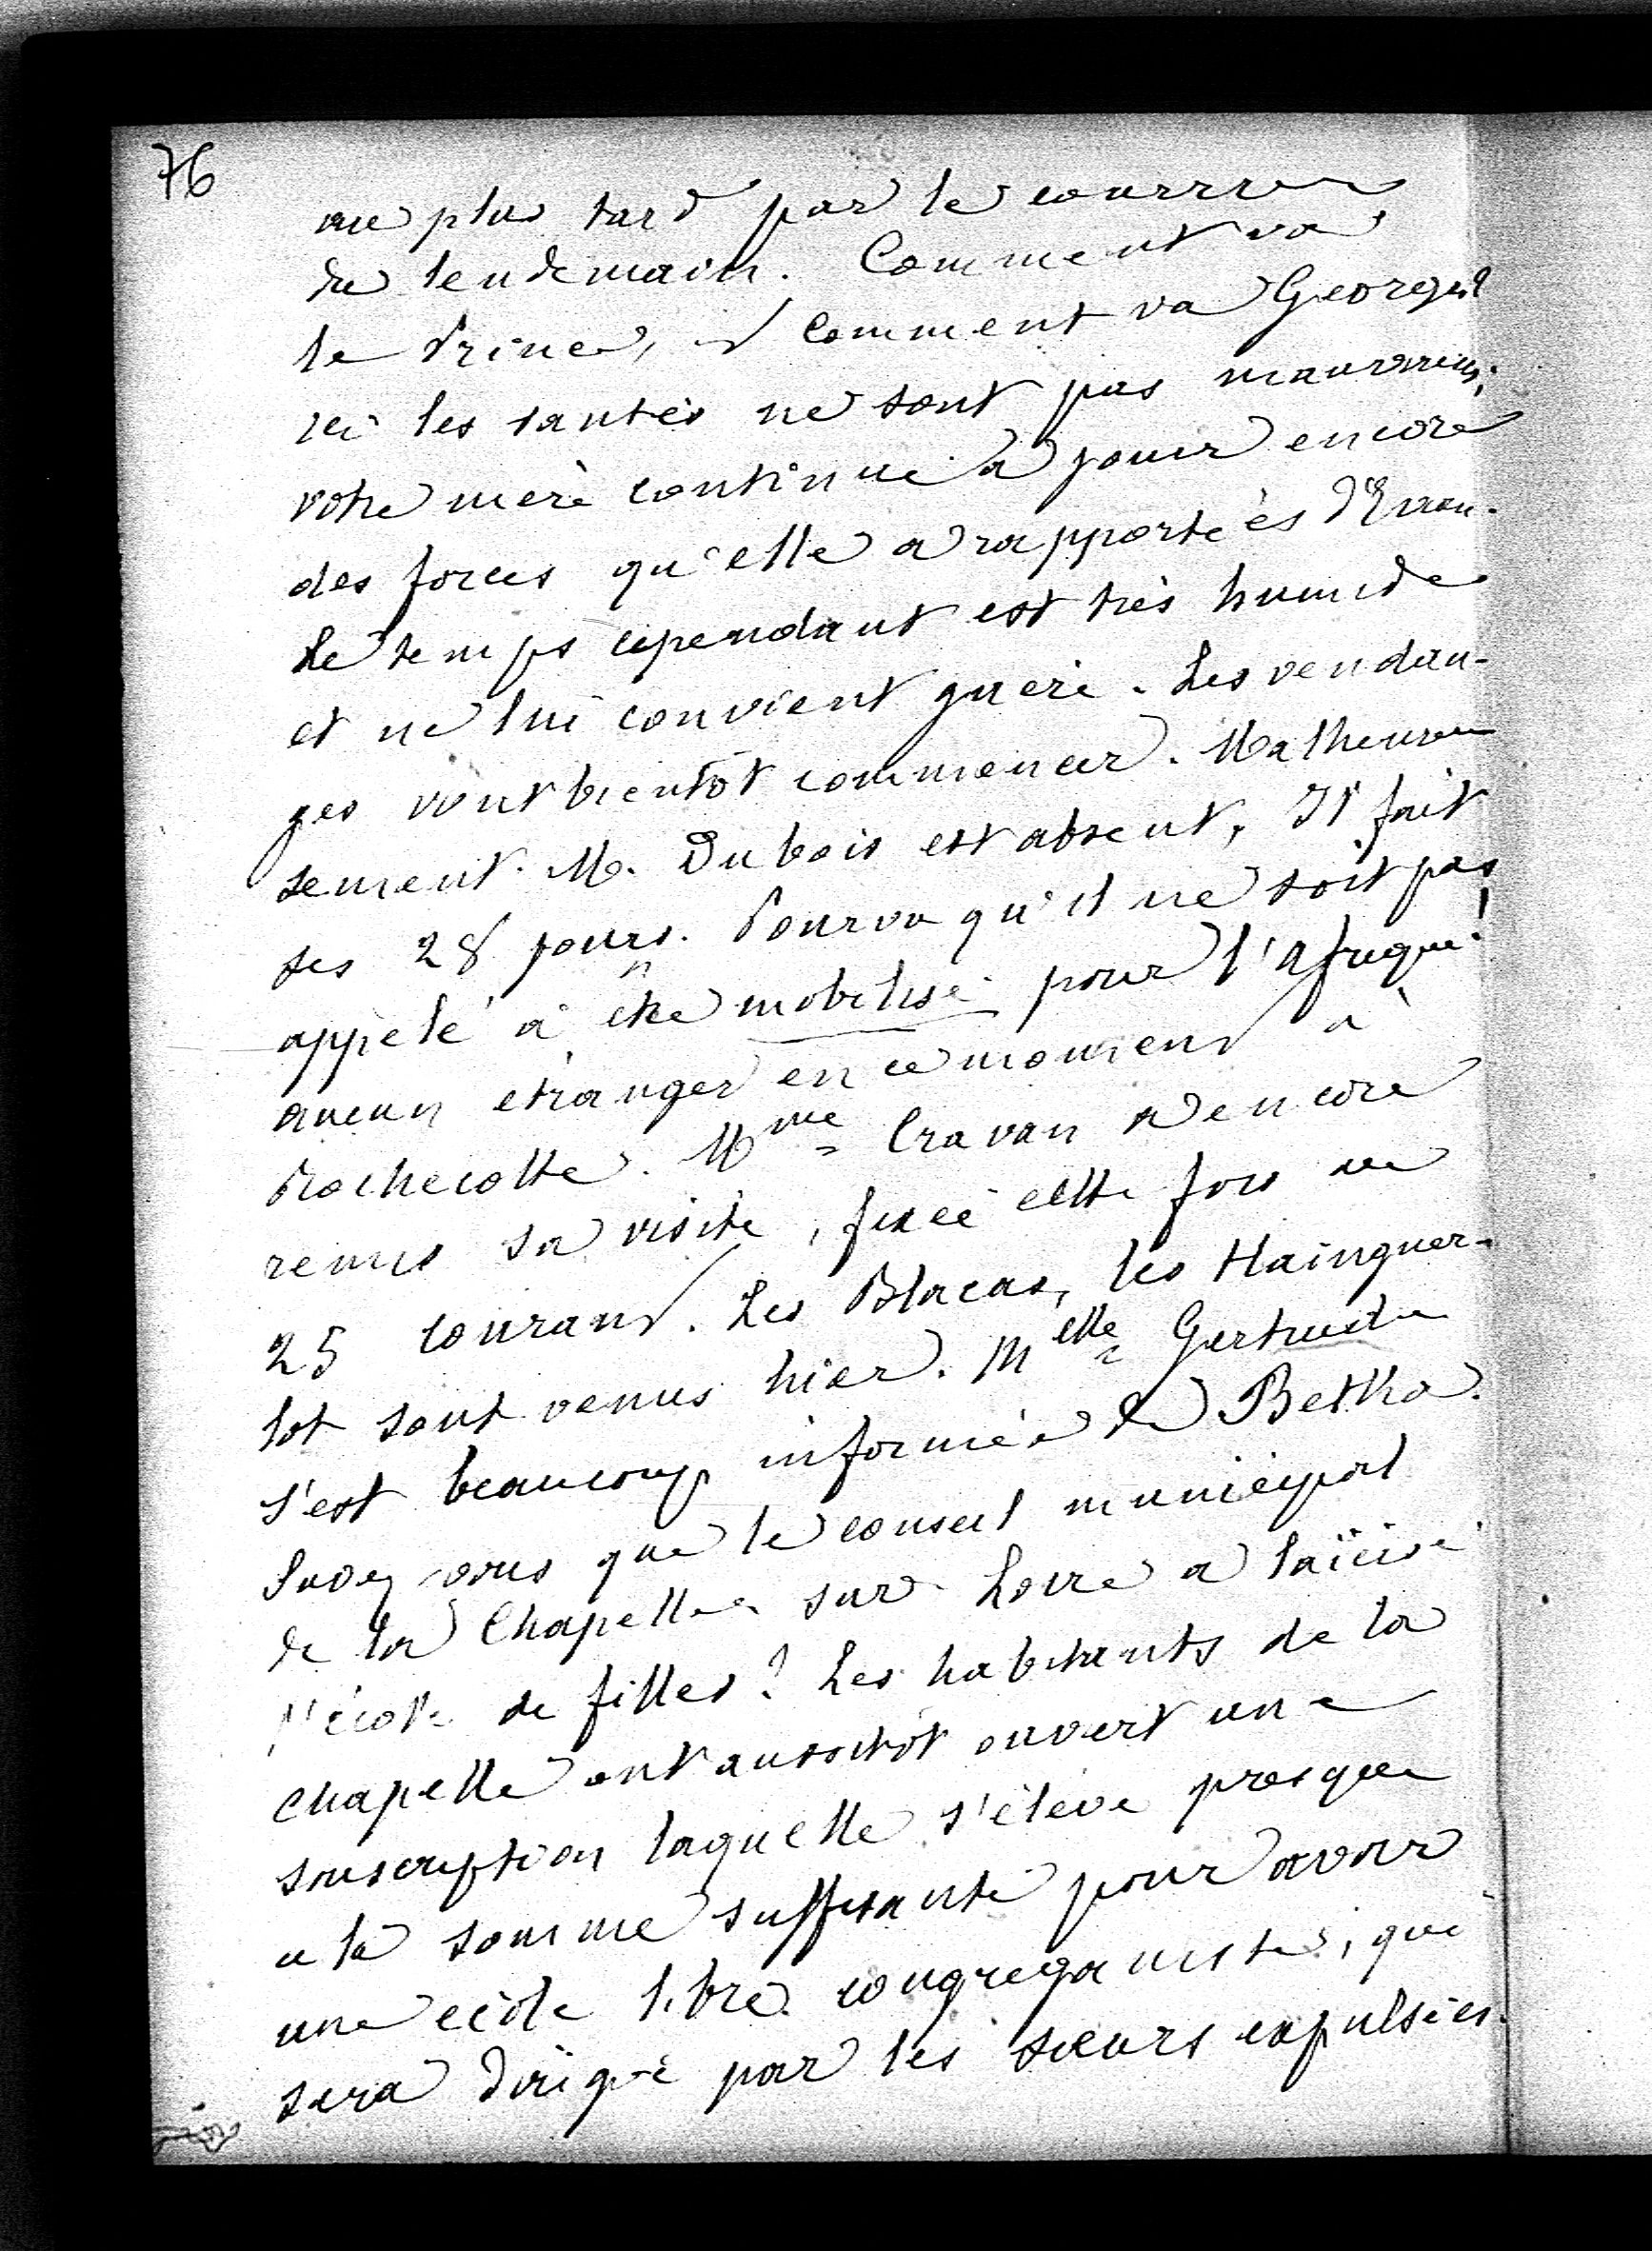 76
au plus tard par le courrier
du lendemain. Comment va
le Prince, et comment va Georges?
ici les santés ne sont pas mauvaises;
votre mère continue à jouir encore
des forces qu'elle a rapportées d'
Le temps cependant est très humide
et ne lui convient guère. Les vendan-
ges vont bientôt commencer. Malheureu
sement M. Dubois est absent, Il fait
ses 28 jours. Pourvu qu'il ne soit pas
appelé à être mobilisé pour l'Afrique!
aucun étranger en ce moment à
Rochecotte. Mme Cravan a encore
remis sa visite, fixée cette fois au
25 courant. Les Blacas, les Hainguer-
lot sont venus hier. Melle Gertrude
s'est beaucoup informée de Betka.
Savez vous que le conseil municipal
de la Chapelle sur Loire a laïcisé
l'école de filles? Les habitants de la
Chapelle ont aussitôt ouvert une
souscription laquelle s'élève presque
a la somme suffisante pour avoir
une école libre congréganiste, qui
sera dirigée par les sœurs expulsées.